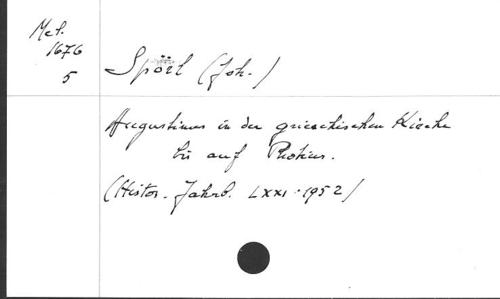 Mel.
1676
5
Spörl (Joh.)
Augustinus in der griechischen Kirche
bis auf Photius.
(Histor. Jahrb. LXXI. 1952)